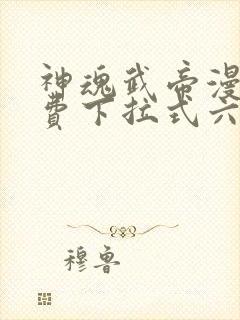 神魂武帝漫
費下拉式六
穆鲁